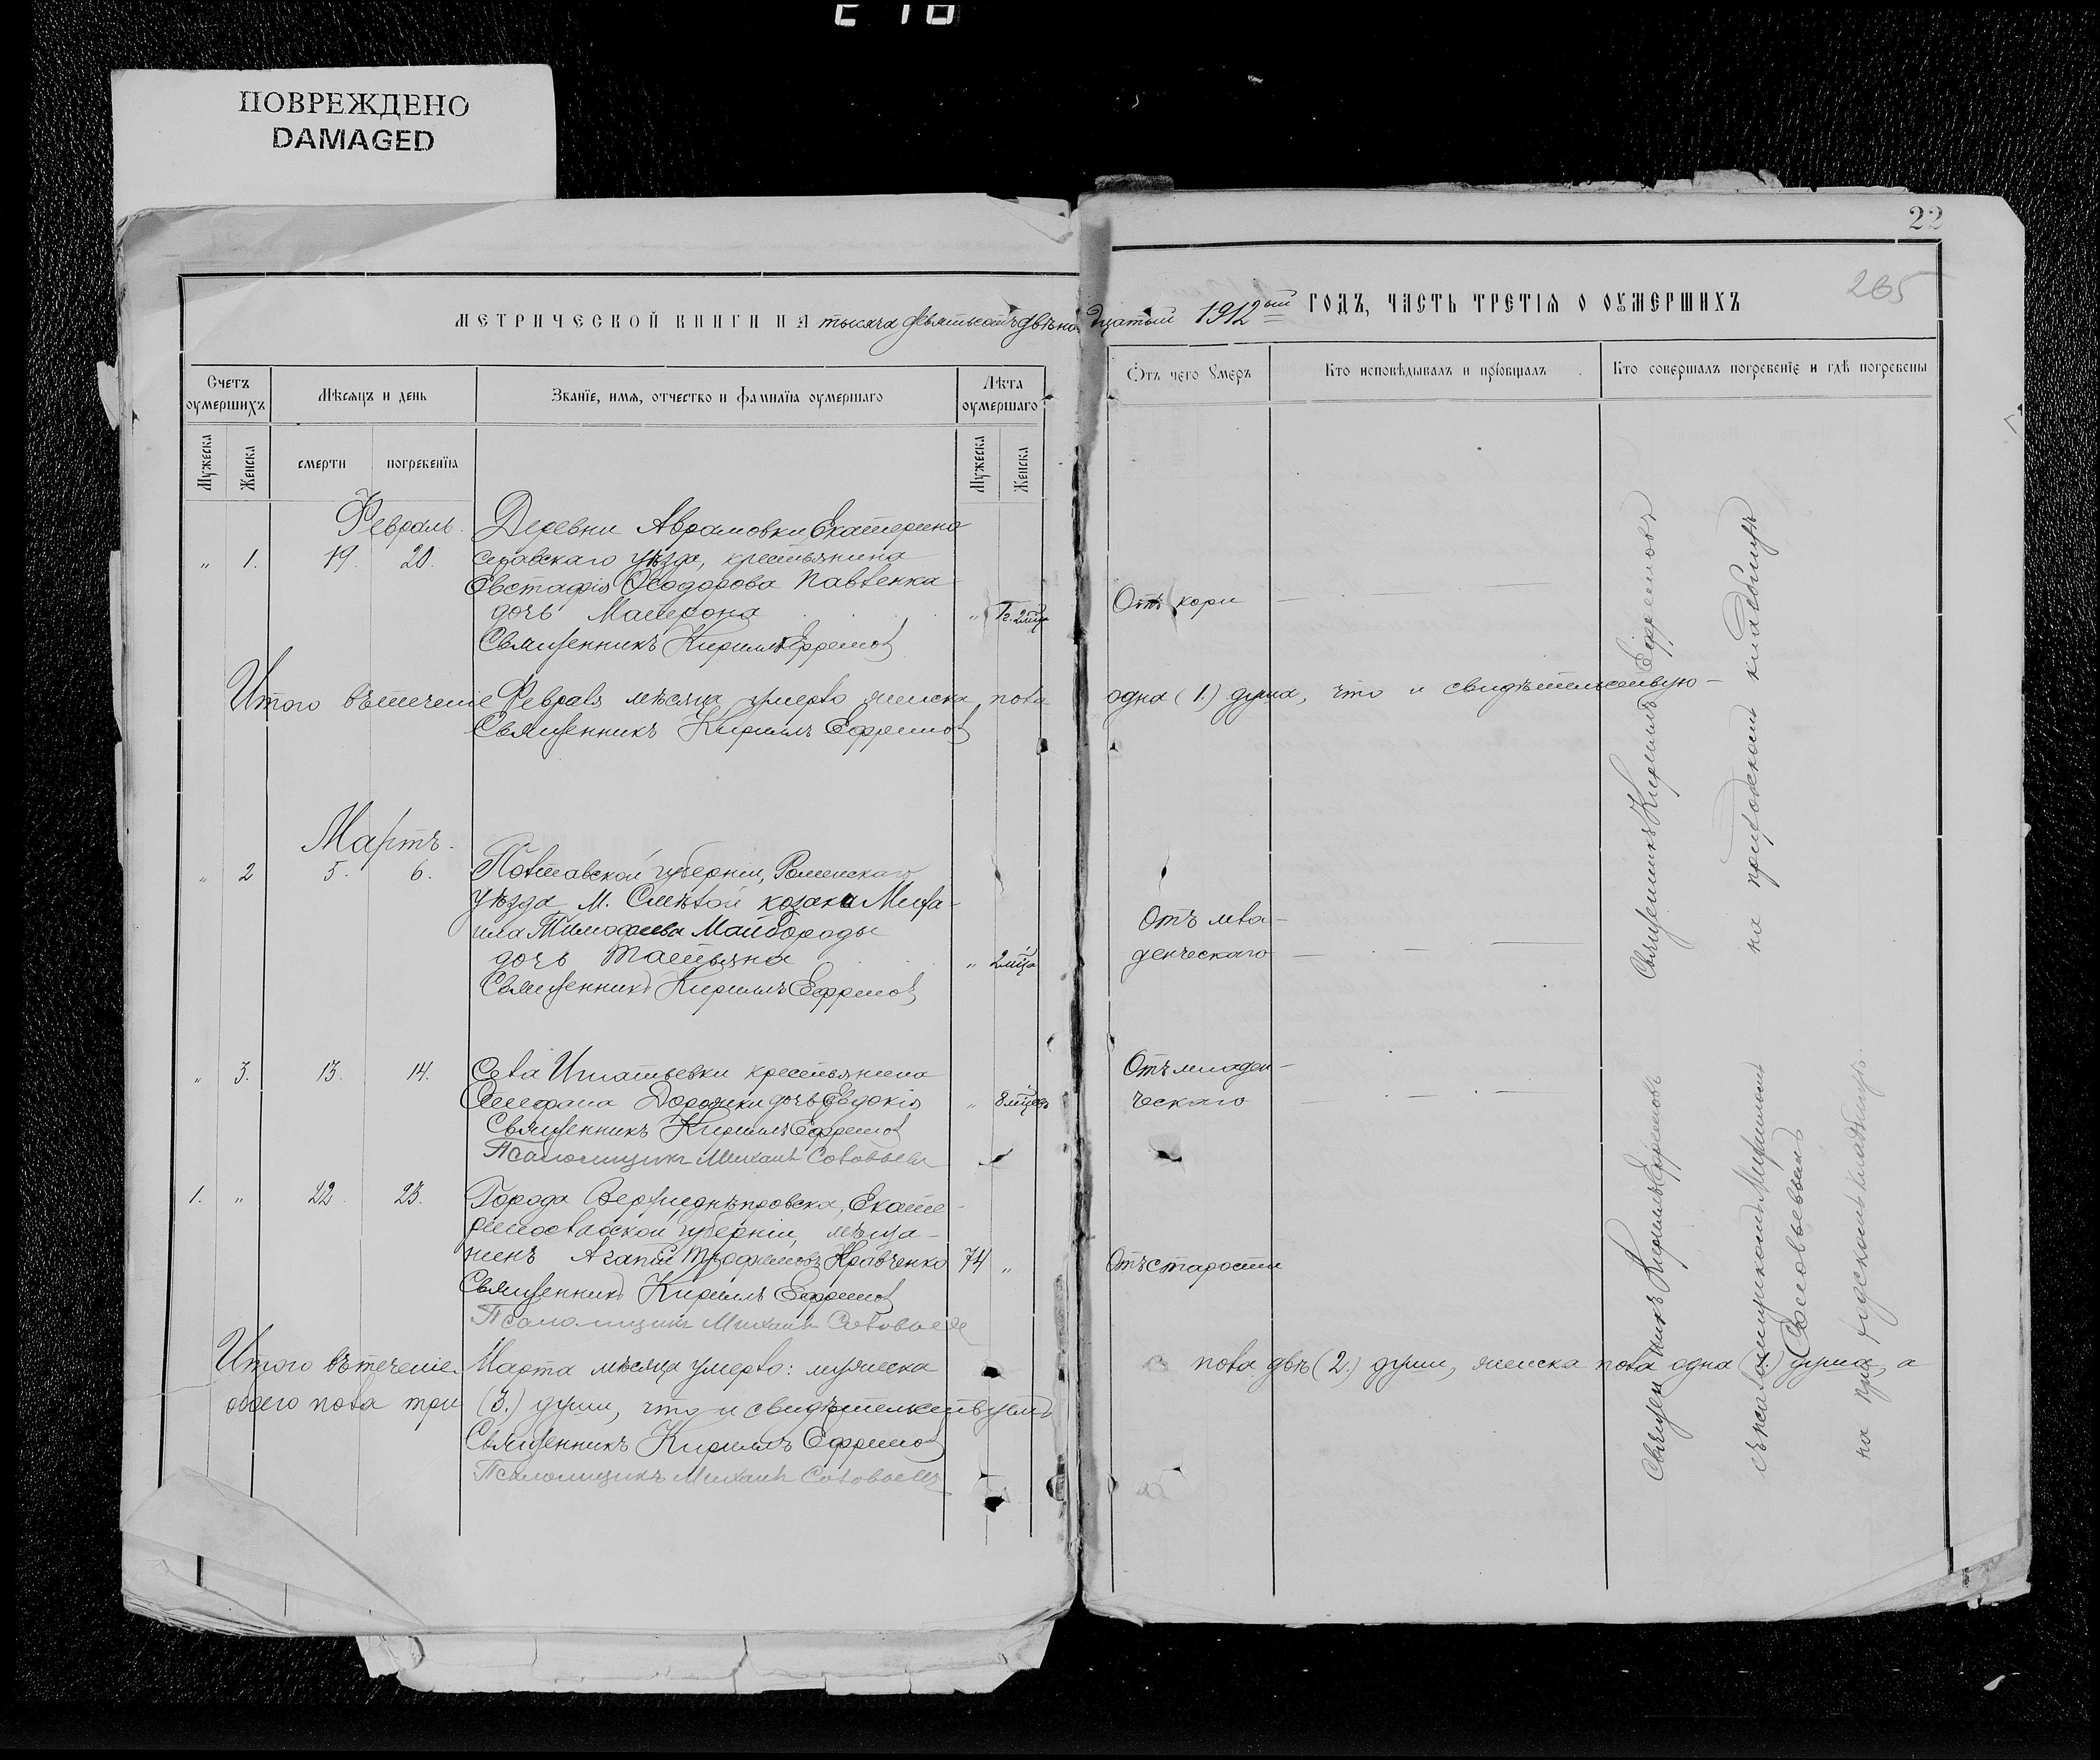 ПОВРЕЖДЕНО
DAMAGED
22
265
МЕТРИЧЕСКОЙ КНИГИ НА тысяча девятьсотъ двѣнадцатый 1912ый ГОДЪ, ЧАСТЬ ТРЕТІЯ О ОУМЕРШИХЪ
Счетъ оумершихъ
Мѣсяцъ и день
Званїе, имя, отчество и фамилїа оумершаго
Лѣта оумершаго
Отъ чего умеръ
Кто исповѣдывалъ и прїобщалъ
Кто совершалъ погребенїе и гдѣ погребены
Мужеска
Женска
смерти
погребенїа
Мужеска
Женска
Февраль. Деревни Аврамовки, Екатерино
„ 1. 19. 20. славскаго уѣзда, крестьянина
Евстафія Ѳеодорова Павленка
дочь Матрона „ 1 г. 2 мца Отъ кори
Священникъ Кириллъ Ефремовъ
Итого въ теченіе Февраля мѣсяца умерло женска пола одна (1.) душа, что и свидѣтельствую
Священникъ Кириллъ Ефремовъ
Мартъ.
„ 2 5. 6. Полтавской губерніи, Роменскаго
уѣзда М. Смѣлой козака Миха-
ила Тимофеева Майбороды Отъ мла-
дочь Татьяна „ 2 мца денческаго
Священникъ Кириллъ Ефремовъ
„ 3. 13. 14. Села Игнатьевки крестьянина Отъ младен-
Стефана Дорошки дочь Евдокія „ 8 мцевъ ческаго
Священникъ Кириллъ Ефремовъ
Псаломщикъ Михаилъ Соловьевъ
1. „ 22. 23. Города Верхнеднѣпровска, Екате-
ринославской губерніи, мѣща-
нинъ Агапій Кравченко 74 „ Отъ старости
Священникъ Кириллъ Ефремовъ
Псаломщикъ Михаилъ Соловьевъ
Итого въ теченіе Марта мѣсяца умерло: мужеска пола двѣ (2.) души, женска пола одна (1.) душа, а
обоего пола три (3.) души, что и свидѣтельствуемъ
Священникъ Кириллъ Ефремовъ
Псаломщикъ Михаилъ Соловьевъ
Священникъ Кириллъ Ефремовъ
на приходскомъ кладбищѣ
Священникъ Кириллъ Ефремовъ
съ псаломщикомъ Михаиломъ
Соловьевымъ
на приходскомъ кладбищѣ.